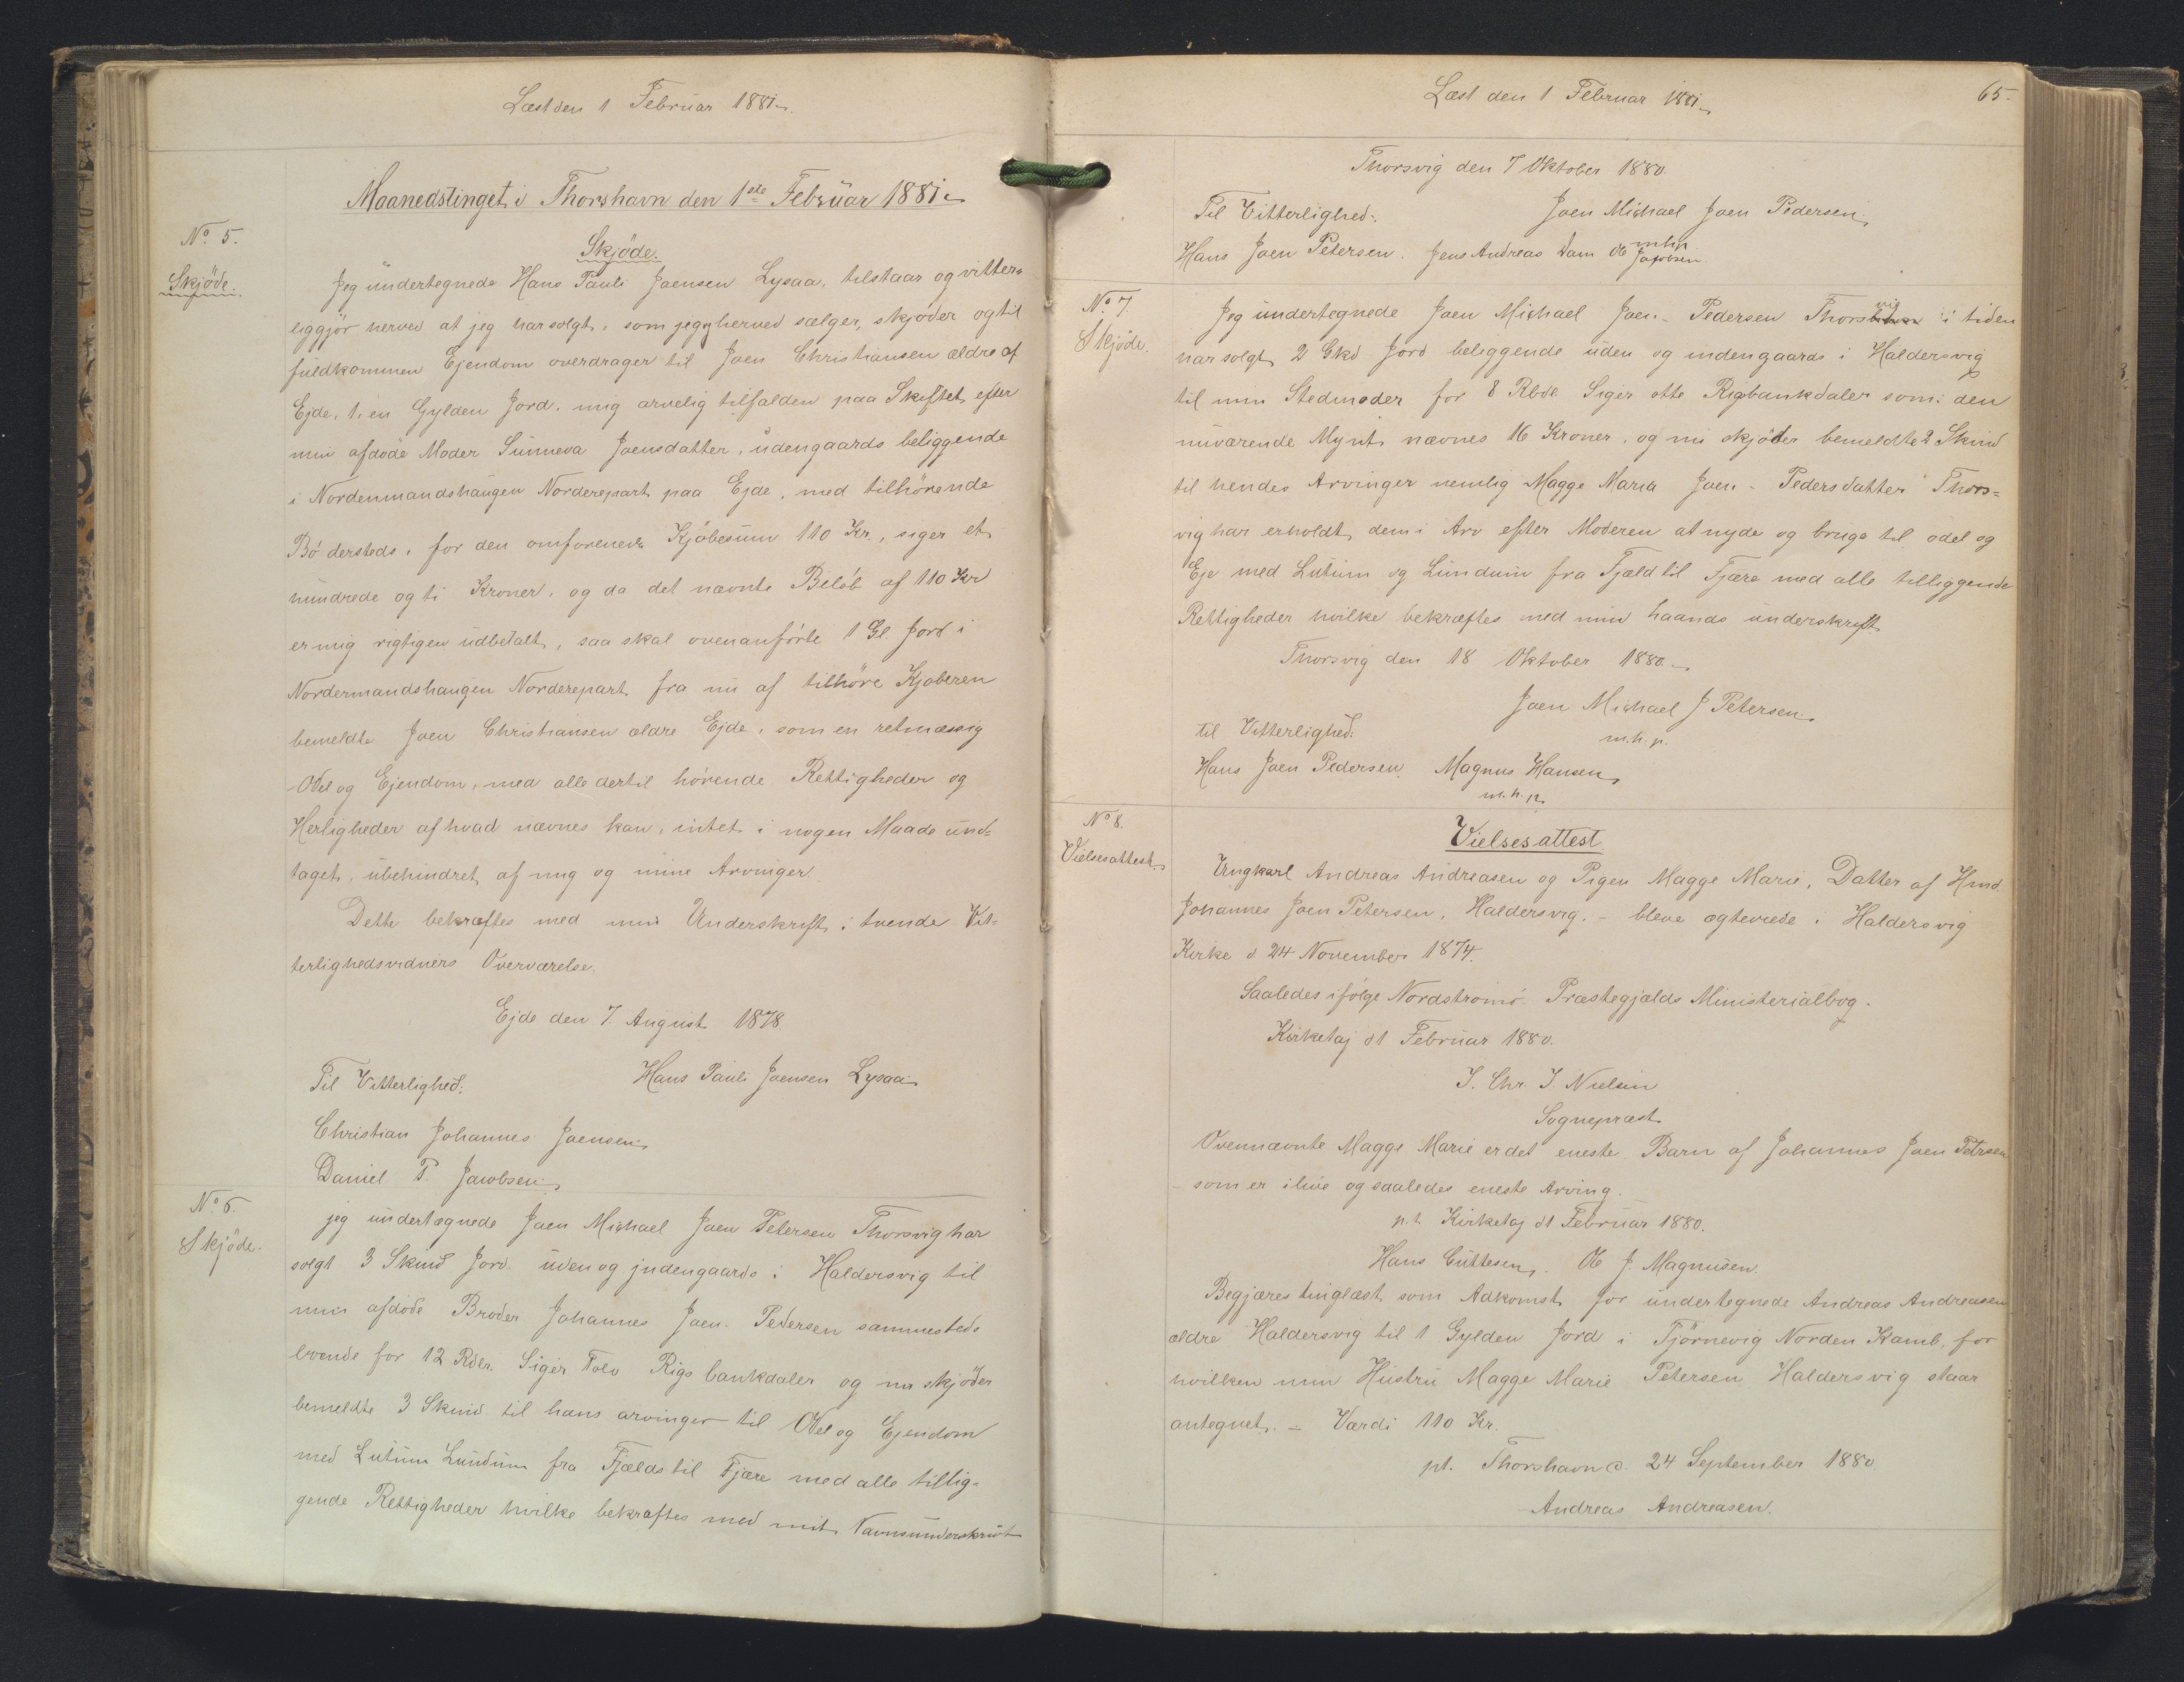 Læst den 1 Februar 1881.
Maanedstinget i Thorshavn den 1ste Februar 1881.
No 5.
Skjöde.
Skjöde.
Jeg undertegnede Hans Pauli Joensen Lysaa, tilstaar og vitter-
liggjör herved at jeg har solgt, som jeg herved sælger, skjöder og til
fuldkommen Ejendom overdrager til Joen Christiansen ældre af
Ejde, 1, en Gylden Jord, mig arvelig tilfalden paa Skiftet efter
min afdöde Moder Sunneva Joensdatter, udengaards beliggende
i Nordenmandshaugen Norderepart paa Ejde, med tilhörende
Bö dersteds, for den omforenede Kjöbesum 110 Kr., siger et
hundrede og ti Kroner, og da det nævnte Belöb af 110 Kr
er mig rigtigen udbetalt, saa skal ovenanförte 1 Gl Jord i
Nordermandshaugen Norderepart fra nu af tilhöre Kjöberen
bemeldte Joen Christiansen ældre Ejde, som en retmæssig
Odel og Ejendom, med alle dertil hörende Rettigheder og
Herligheder af hvad nævnes kan, intet i nogen Maade und-
taget, ubehindret af mig og mine Arvinger.
Dette bekræftes med min Underskrift i tvende Vit-
terlighedsvidners Overværelse.
Ejde den 7. August 1878.
Til Vitterlighed: Hans Pauli Joensen Lysaa
Christian Johannes Joensen
Daniel P. Jacobsen
No 6.
Skjöde.
jeg undertegnede Joen Michael Joen Petersen Thorsvig har
solgt 3 Skind Jord uden og indengaards i Haldersvig til
min afdöde Broder Johannes Joen-Pedersen sammesteds
boende for 12 Rdlr. Siger Tolv Rigsbankdaler og nu skjöder
bemeldte 3 Skind til hans arvinger til Odel og Ejendom
med Lutum Lundum fra Fjælds til Fjære med alle tillig-
gende Rettigheder hvilke bekræftes med mit Navnsunderskrivt
Læst den 1 Februar 1881.
65.
Thorsvig den 7 Oktober 1880.
Til Vitterlighed: Joen Michael Joen Pedersen
Hans Joen Petersen. Jens Andreas Dam Ol Jacobsen. m.h.p.
No 7.
Skjöde.
Jeg undertegnede Joen Michael Joen-Pedersen Thorsvig i tiden
har solgt 2 Skd Jord beliggende uden og indengaards i Haldersvig
til min Stedmoder for 8 Rbdl Siger otte Rigsbankdaler som i den
nuværende Mynt nævnes 16 Kroner, og nu skjöder bemeldte 2 Skind
til hendes Arvinger nemlig Magge Maria Joen-Pedersdatter Thors-
vig har erholdt dem i Arv efter Moderen at nyde og bruge til odel og
Eje med Lutum og Lundum fra Fjæld til Fjære med alle tilliggende
Rettigheder hvilke bekræftes med min haands underskrift
Thorsvig den 18 Oktober 1880.
Joen Michael J Petersen.
m.h.p.
til Vitterlighed:
Hans Joen Pedersen. Magnus Hansen
m.h.p.
No 8.
Vielsesattest.
Vielsesattest
Ungkarl Andreas Andreasen og Pigen Magge Marie, Datter af Hmd.
Johannes Joen Petersen, Haldersvig. - bleve ægteviede i Haldersvig
Kirke d 24 November 1874.
Saaledes ifölge Nordströmö Præstegjælds Ministerialbog.
Kirketaj d 1 Februar 1880.
J. Chr. J. Nielsen
Sognepræst
Ovennævnte Magge Marie er det eneste Barn af Johannes Joen Petersen
- som er ilive og saaledes eneste Arving.
p.t. Kirketaj d 1 Februar 1880.
Hans Guttesen. Ol J. Magnusen.
Begjæres tinglæst som Adkomst for undertegnede Andreas Andreasen
ældre Haldersvig til 1 Gylden Jord i Tjörnevig Norden Kamb, for
hvilken min Hustru Magge Marie Petersen Haldersvig staar
antegnet. - Værdi 110 Kr.
pt. Thorshavn d. 24 September 1880
Andreas Andreasen.